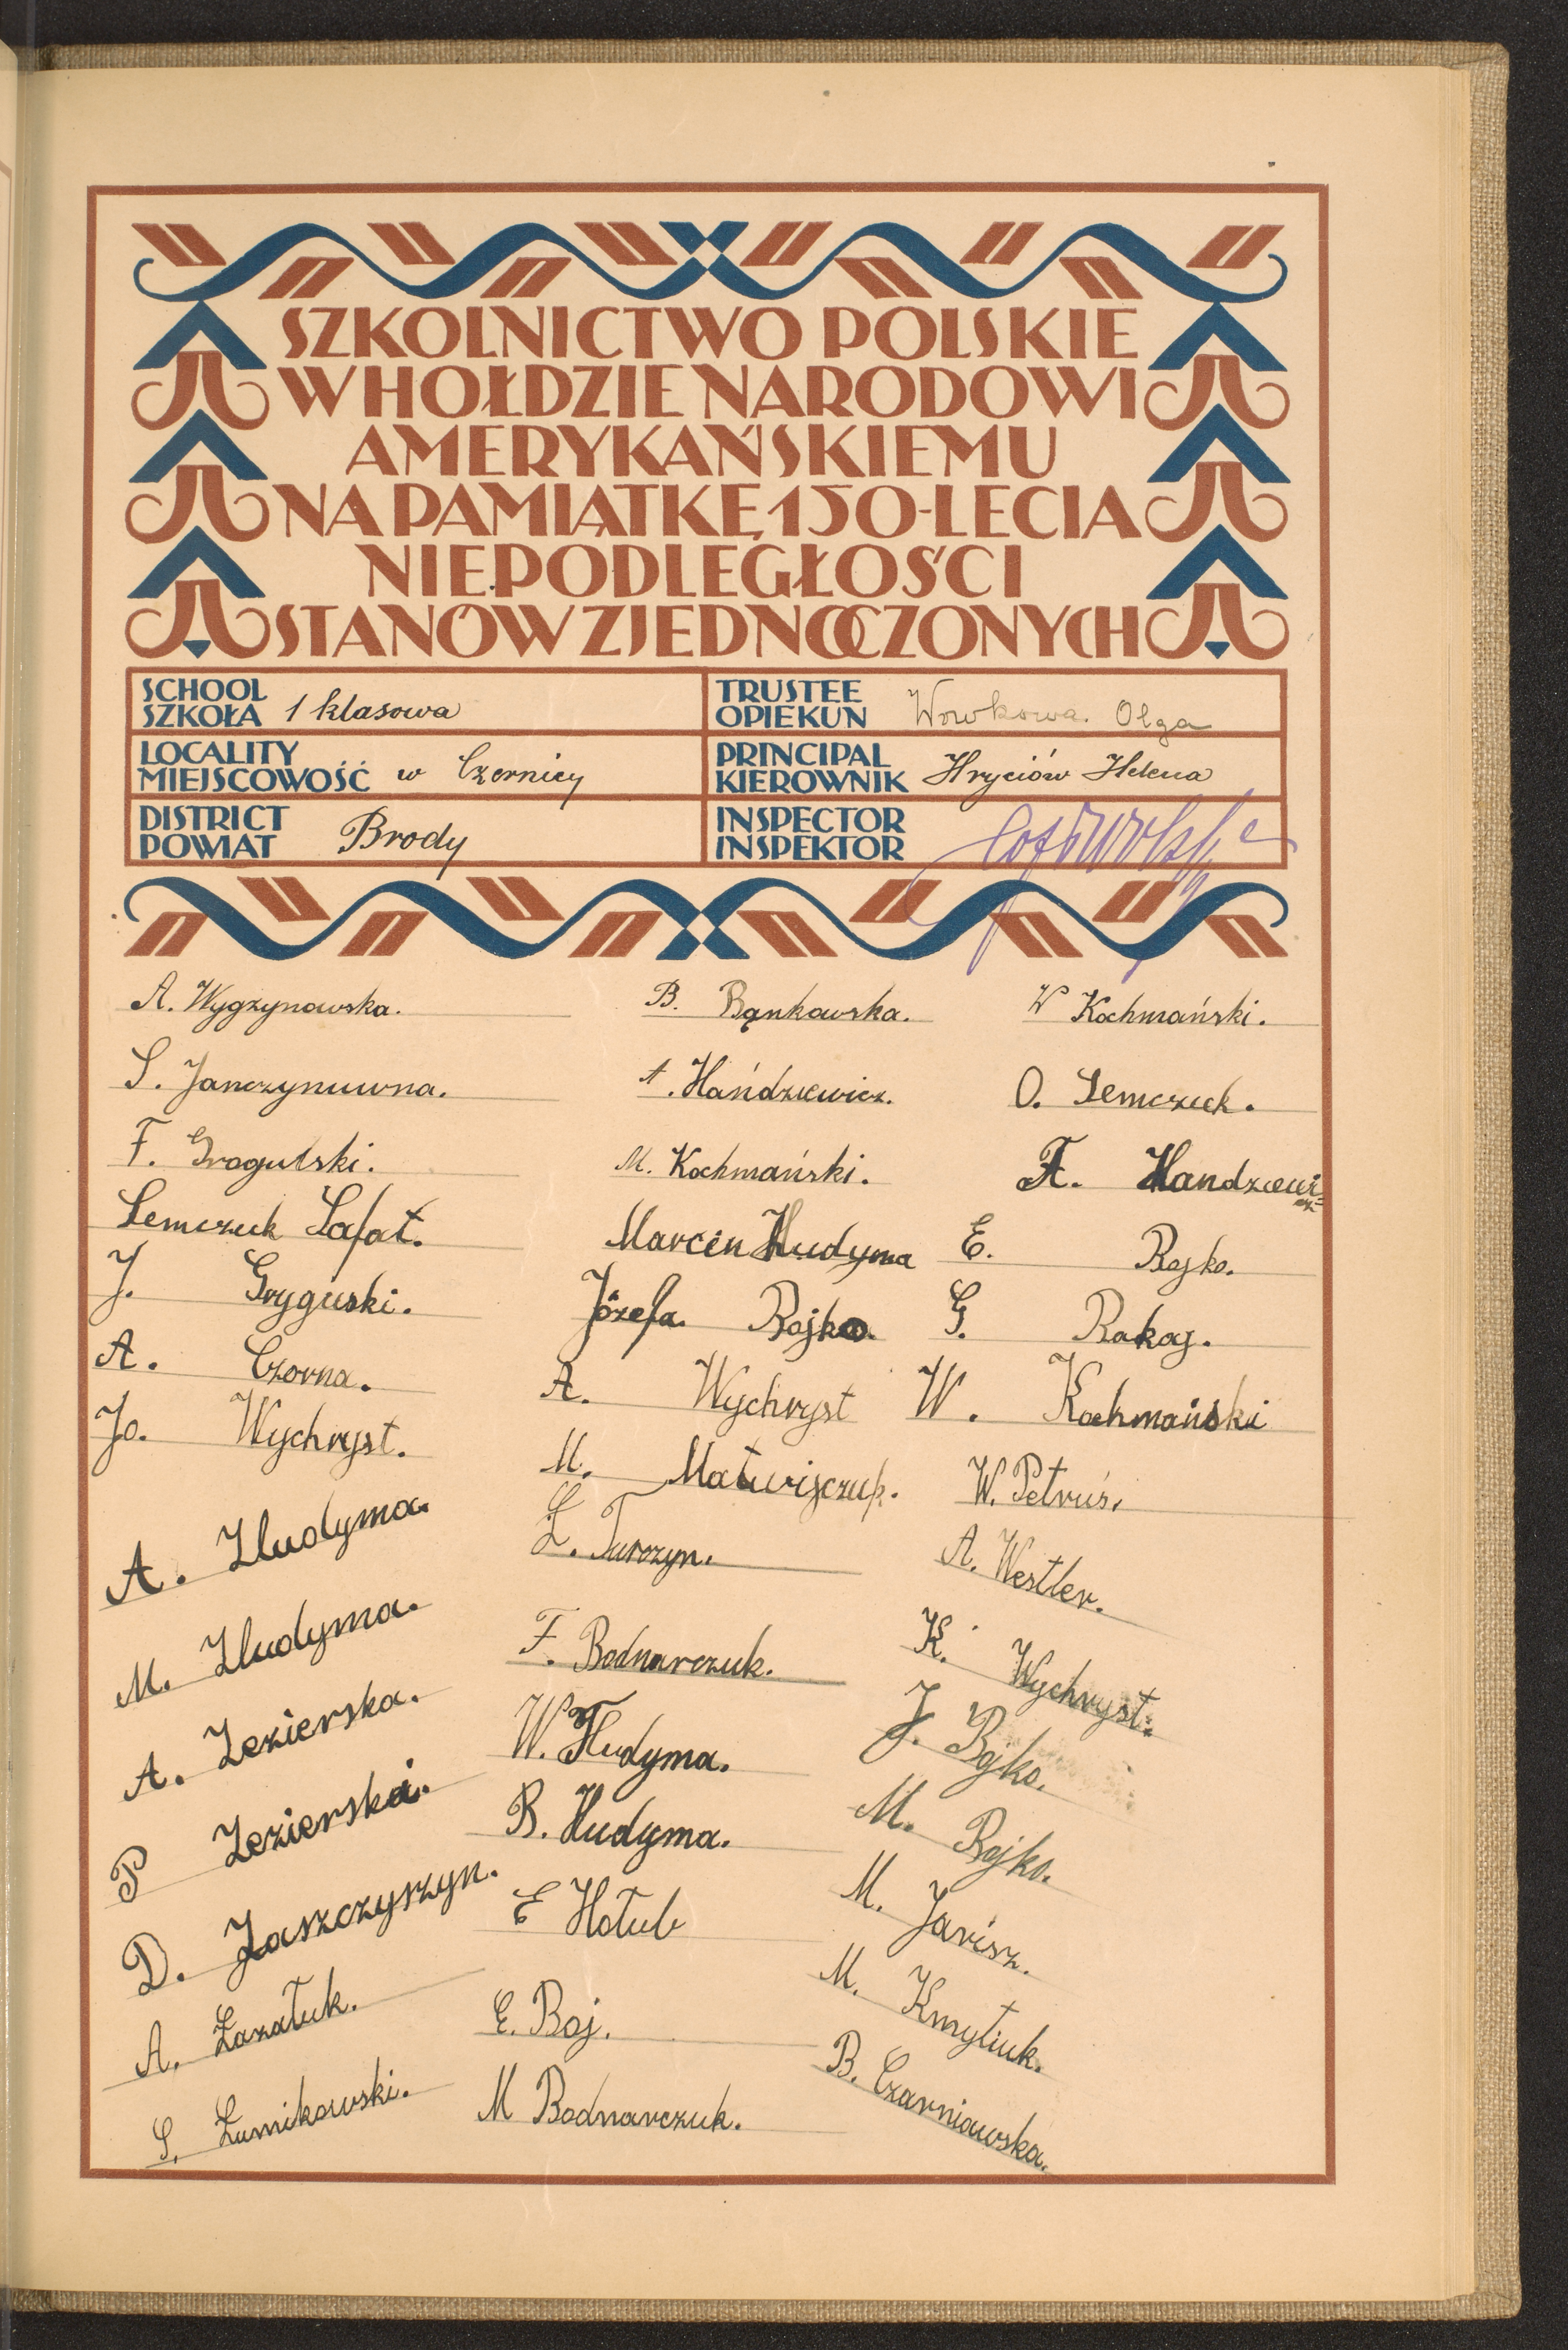 SZKOLNICTWO POLSKIE
W HOŁDZIE NARODOWI
AMERYKAŃSKIEMU
NA PAMIĄTKĘ 150-LECIA
NIEPODLEGŁOŚCI
STANÓW ZJEDNOCZONYCH
SCHOOL
SZKOŁA 1 klasowa
TRUSTEE
OPIEKUN Wowkowa Olga
LOCALITY
MIEJSCOWOŚĆ w Czernicy
PRINCIPAL
KIEROWNIK Hryciów Helena
DISTRICT
POWIAT Brody
INSPECTOR
INSPEKTOR
A. Wygzynowska.
S. Janczynuwna.
F. Grogulski.
Semczuk Safat.
J. Gryguski.
A. Czorna.
Jo. Wychryst.
A. Hudyma.
M. Hudyma.
A. Jezierska.
P Jezierska.
D. Jaszczyszyn.
A. Łazałuk.
S. Łumikowski.
B. Bąnkowska.
A. Hańdziewicz.
M. Kochmański.
Marcin Hudyma
Józefa. Bojko.
A. Wychryst
M. Matwijczuk.
Z. Turczyn.
F. Bodnarczuk.
W. Hudyma.
B. Hudyma.
E Hołub
E. Boj.
M Bodnarczuk.
W Kochmański.
O. Semczuk.
F. Handziewi=
cz.
E. Bojko.
G. Rakaj.
W. Kochmański
W. Petruś.
A. Westler.
K. Wychryst.
J. Bojko.
M. Bojko.
M. Jarisz.
M. Kmytiuk.
B. Czarniawska.